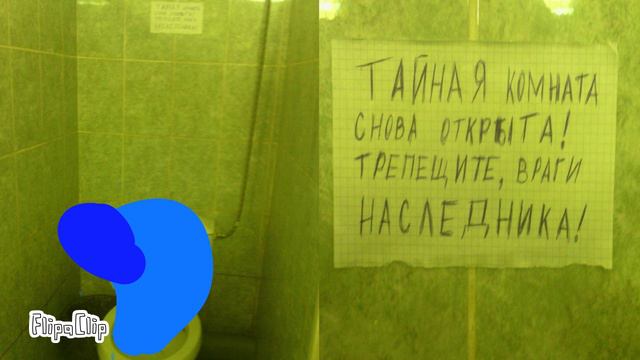 ТАЙНАЯ КОМНАТА
СНОВА ОТКРЫТА!
ТРЕПЕЩИТЕ, ВРАГИ
НАСЛЕДНИКА!
FlipaClip